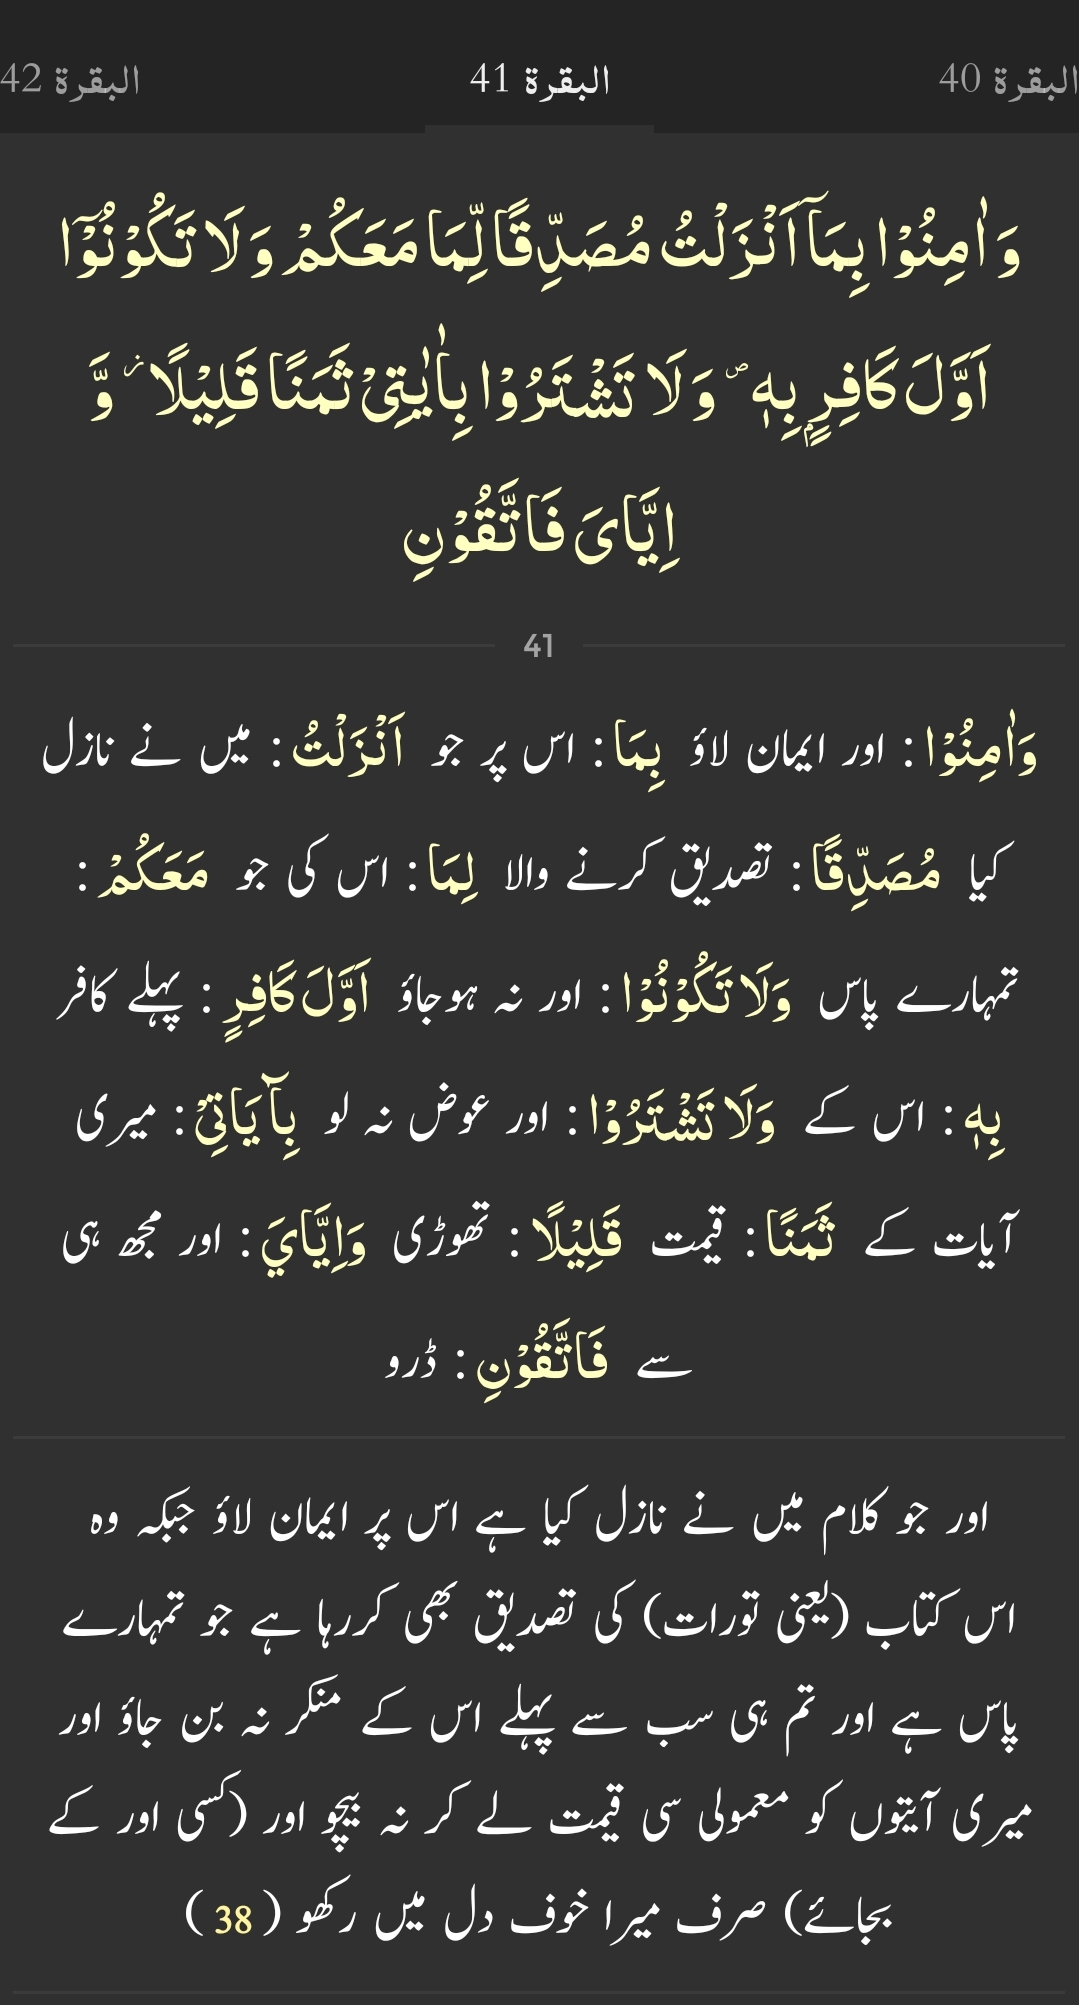 البقرة 40
البقرة 41
البقرة 42
وَ اٰمِنُوۡا بِمَاۤ اَنۡزَلۡتُ مُصَدِّقًا لِّمَا مَعَكُمۡ وَلَا تَكُوۡنُوۡٓا
اَوَّلَ كَافِرٍۭ بِهٖ ۖ وَلَا تَشۡتَرُوۡا بِاٰيٰتِىۡ ثَمَنًا قَلِيۡلًا ؗ وَّ
اِيَّاىَ فَاتَّقُوۡنِ
41
وَاٰمِنُوْا : اور ایمان لاؤ بِمَا : اس پر جو اَنْزَلْتُ : میں نے نازل
کیا مُصَدِّقًا : تصدیق کرنے والا لِمَا : اس کی جو مَعَكُمْ :
تمہارے پاس وَلَا تَكُوْنُوْا : اور نہ ہوجاؤ اَوَّلَ كَافِرٍ : پہلے کافر
بِهٖ : اس کے وَلَا تَشْتَرُوْا : اور عوض نہ لو بِآ يَاتِیْ : میری
آیات کے ثَمَنًا : قیمت قَلِیْلًا : تھوڑی وَاِيَّايَ : اور مجھ ہی
سے فَاتَّقُوْنِ : ڈرو
اور جو کلام میں نے نازل کیا ہے اس پر ایمان لاؤ جبکہ وہ
اس کتاب (یعنی تورات) کی تصدیق بھی کررہا ہے جو تمہارے
پاس ہے اور تم ہی سب سے پہلے اس کے منکر نہ بن جاؤ اور
میری آیتوں کو معمولی سی قیمت لے کر نہ بیچو اور (کسی اور کے
بجائے) صرف میرا خوف دل میں رکھو ( 38 )